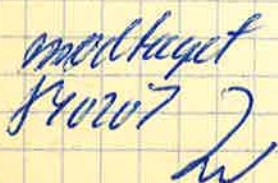 modtaget
840207